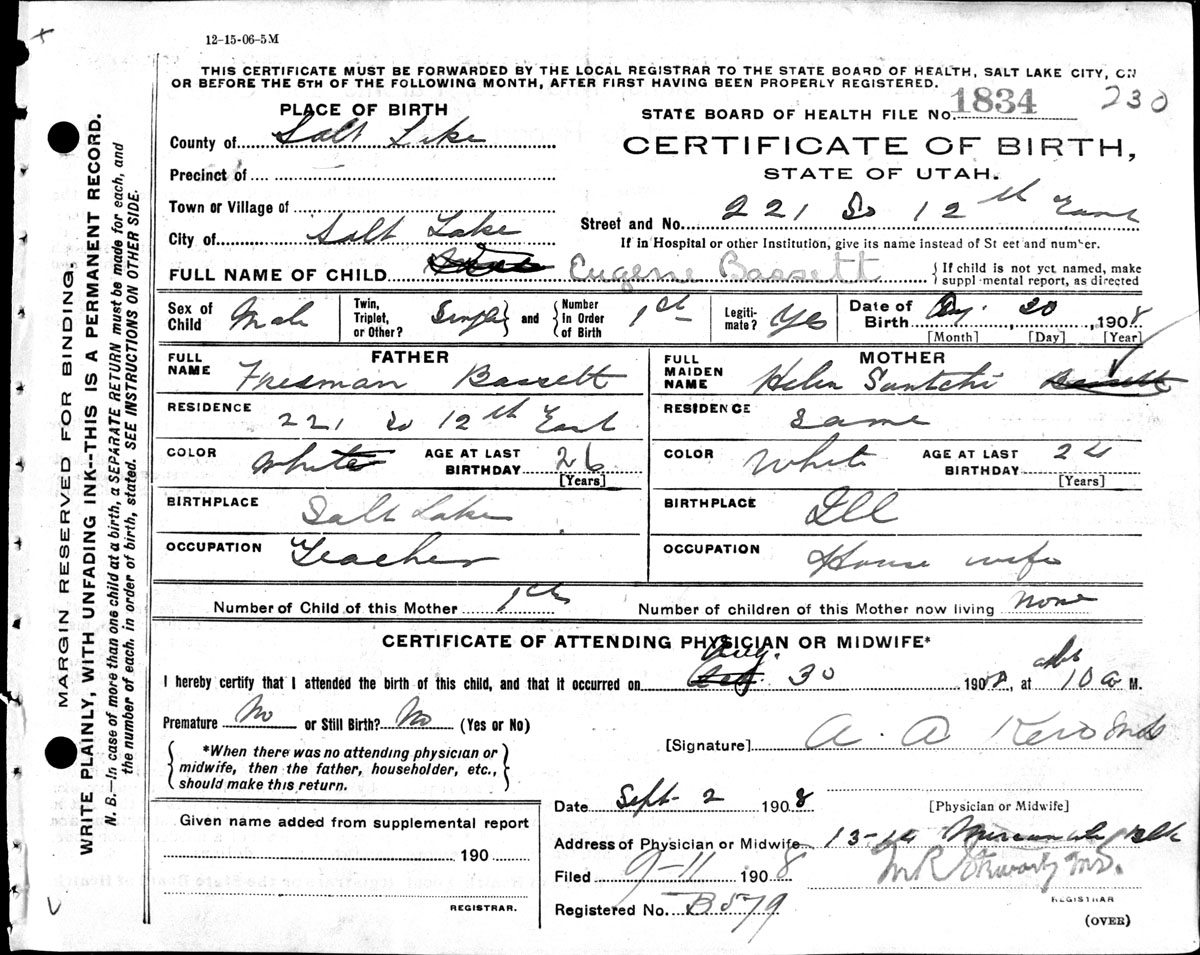 12-15-06-5M
THIS CERTIFICATE MUST BE FORWARDED BY THE LOCAL REGISTRAR TO THE STATE BOARD OF HEALTH, SALT LAKE CITY, ON
OR BEFORE THE 5TH OF THE FOLLOWING MONTH, AFTER FIRST HAVING BEEN PROPERLY REGISTERED.
230
PLACE OF BIRTH
STATE BOARD OF HEALTH FILE No. 1834
County of Salt Lake
CERTIFICATE OF BIRTH,
Precinct of
STATE OF UTAH.
Town or Village of
Street and No. 221 So 12th East
City of Salt Lake
If in Hospital or other Institution, give its name instead of St eet and number.
FULL NAME OF CHILD Eugene Bassett { If child is not yet named, make
suppl·mental report, as directed
Sex of Child Male
Twin, Triplet, or Other? Single } and { Number In Order of Birth 1st
Legiti- mate? Yes
Date of Birth 30, 1908
[Month] [Day] [Year]
FATHER
FULL NAME Freeman Bassett
RESIDENCE 221 So 12th East
COLOR White AGE AT LAST BIRTHDAY 26
[Years]
BIRTHPLACE Salt Lake
OCCUPATION Teacher
MOTHER
FULL MAIDEN NAME Helen Bassett
RESIDENCE Same
COLOR White AGE AT LAST BIRTHDAY 24
[Years]
BIRTHPLACE Ill
OCCUPATION House wife
Number of Child of this Mother 1st Number of children of this Mother now living none
CERTIFICATE OF ATTENDING PHYSICIAN OR MIDWIFE*
I hereby certify that I attended the birth of this child, and that it occurred on Aug. 30 1908, at 10 a M.
Premature No or Still Birth? No (Yes or No)
[Signature] A. A. Kerr
{ *When there was no attending physician or
midwife, then the father, householder, etc.,
should make this return. }
Date Sept 2 1908
[Physician or Midwife]
Given name added from supplemental report
190
REGISTRAR.
Address of Physician or Midwife
Filed 9-11 1908
Registered No. B579
REGISTRAR
(OVER)
MARGIN RESERVED FOR BINDING.
WRITE PLAINLY, WITH UNFADING INK--THIS IS A PERMANENT RECORD.
N. B.—In case of more than one child at a birth, a SEPARATE RETURN must be made for each, and
the number of each, in order of birth, stated. SEE INSTRUCTIONS ON OTHER SIDE.